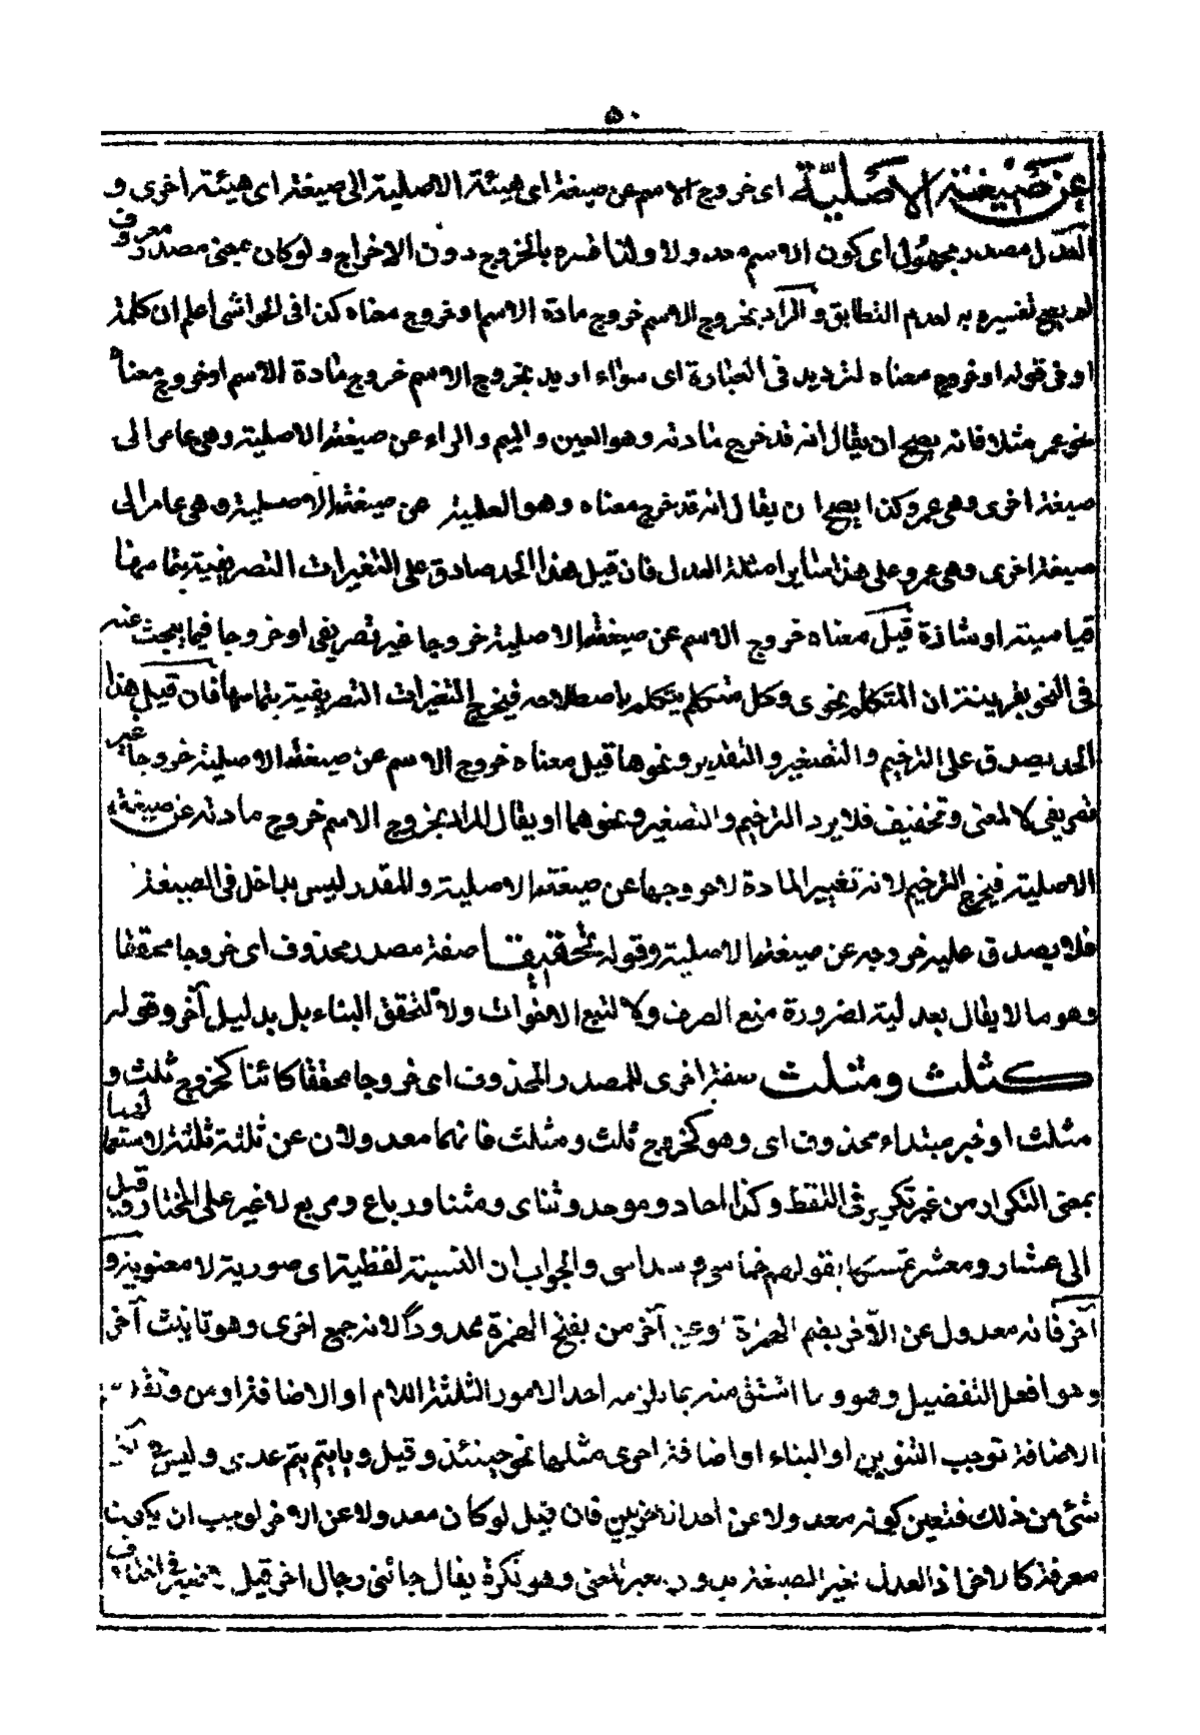 ٥٠
عن صيغته الاصلية اى خروج الاسم عن صيغة اى هيئة الاصلية الى صيغة اى هيئة اخرى و
العدل مصدر مجهول اى كون الاسم معدولا ولذا فسره بالخروج دون الاخراج ولو كان بمعنى مصدر معروف
لم يصح تفسيره به لعدم التطابق والمراد بخروج الاسم خروج مادة الاسم او خروج معناه كذا فى الحواشى اعلم ان كلمة
او فى قوله او خروج معناه لترديد فى العبارة اى سواء اريد بخروج الاسم خروج مادة الاسم او خروج معناه
نحو عمر مثلا فانه يصح ان يقال انه قد خرج مادته وهو العين والميم والراء عن صيغته الاصلية وهى عامر الى
صيغة اخرى وهى عمر وكذا يصح ان يقال انه قد خرج معناه وهو العلمية عن صيغته الاصلية وهى عامر الى
صيغة اخرى وهى عمر وعلى هذا سائر امثلة العدل فان قيل هذا الحد صادق على التغيرات التصريفية بتمامها
قياسية او شاذة قيل معناه خروج الاسم عن صيغته الاصلية خروجا غير تصريفى او خروجا فيما يبحث عنه
فى النحو بقرينة ان المتكلم نحوى وكل متكلم يتكلم باصطلاحه فيخرج التغيرات التصريفية بتمامها فان قيل هذا
الحد يصدق على الترخيم والتصغير والتقدير ونحوها قيل معناه خروج الاسم عن صيغته الاصلية خروجا غير
تصريفى لا لمعنى وتخفيف فلا يرد الترخيم والتصغير ونحوهما او يقال المراد بخروج الاسم خروج مادته عن صيغته
الاصلية فيخرج الترخيم لانه تغيير المادة لا خروجها عن صيغته الاصلية والمقدر ليس بداخل فى الصيغة
فلا يصدق عليه خروجه عن صيغته الاصلية وقوله تحقيقا صفة مصدر محذوف اى خروجا محققا
وهو ما لا يقال بعدليته لضرورة منع الصرف ولا لتبع الاخوات ولا لتحقق البناء بل بدليل آخر وقوله
كثلث ومثلث صفة اخرى للمصدر المحذوف اى خروجا محققا كائنا كخروج ثلث و
مثلث او خبر مبتداء محذوف اى وهو كخروج ثلث ومثلث فانهما معدولان عن ثلثة ثلثة لاستعمالهما
بمعنى التكرار من غير تكرير فى اللفظ وكذا احاد وموحد وثناى ومثنا ورباع ومربع لا غير على المختار وقيل
الى عشار ومعشر تمسكها بقولهم خماسى وسداسى والجواب ان النسبة لفظية اى صورية لا معنوية و
آخر فانه معدول عن الآخر بضم الهمزة وعن آخر من بفتح الهمزة ممدودا لانه جمع اخرى وهو تانيث آخر
وهو افعل التفضيل وهو وما اشتق منه بما يلزمه احد الامور الثلثة اللام او الاضافة او من
الاضافة توجب التنوين او البناء او اضافة اخرى مثلها نحو حينئذ وقيل ويا تيم تيم عدى وليس فى
شئ من ذلك فتعين كونه معدولا عن احد الاخريين فان قيل لو كان معدولا عن الاخر لوجب ان يكون
معرفة كالاخر اذ العدل تغير الصيغة بدون تغير المعنى وهو نكرة يقال جائنى رجال اخر قيل